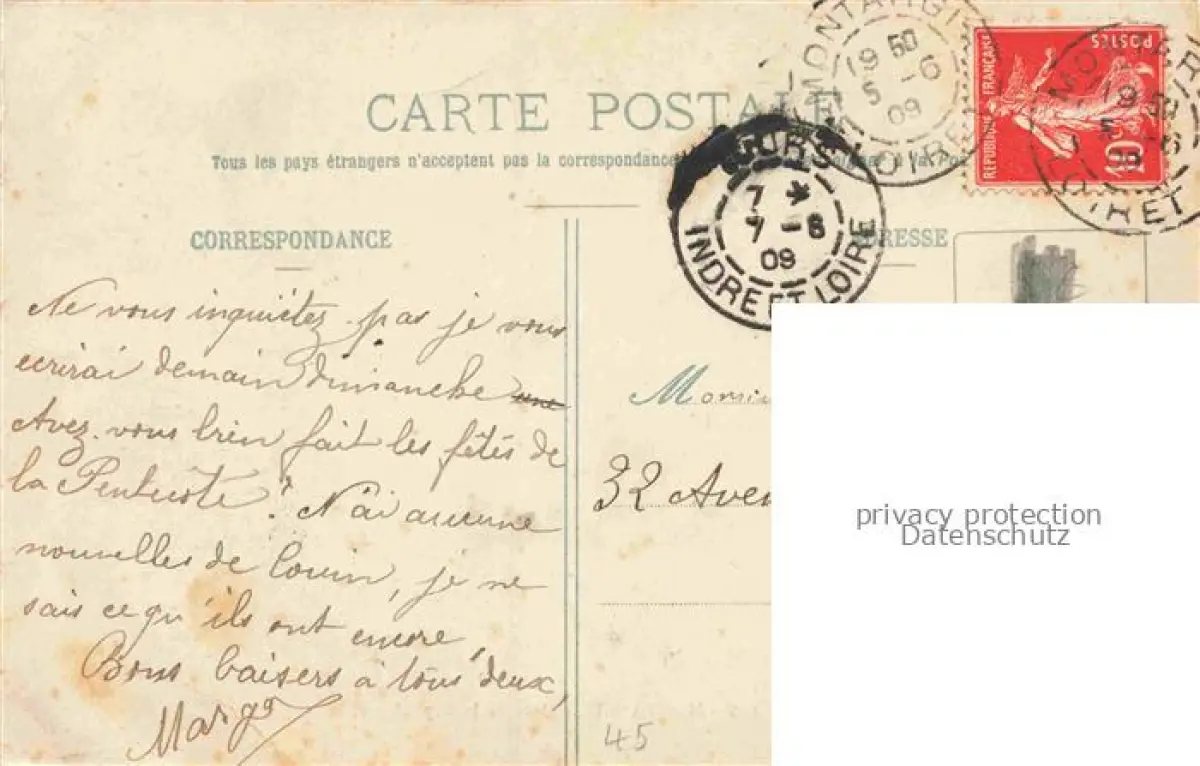 CARTE POSTALE
Tous les pays étrangers n'acceptent pas la correspondance
CORRESPONDANCE
Ne vous inquiétez pas je vous
ecrirai demain dimanche
Avez-vous bien fait les fêtes de
la Pentecôte? N'ai aucune
nouvelles de
je ne
sais ce qu'ils ont encore,
Bons baisers à tous deux,
Margo
MONTARGIS
19 50
5 -6
09
LOIRET
REPUBLIQUE FRANÇAISE
POSTES
10
MONTARGIS
19 50
5 -6
09
LOIRET
TOURS
7 *
7 -6
09
INDRE ET LOIRE
ADRESSE
32 Aven
privacy protection
Datenschutz
45